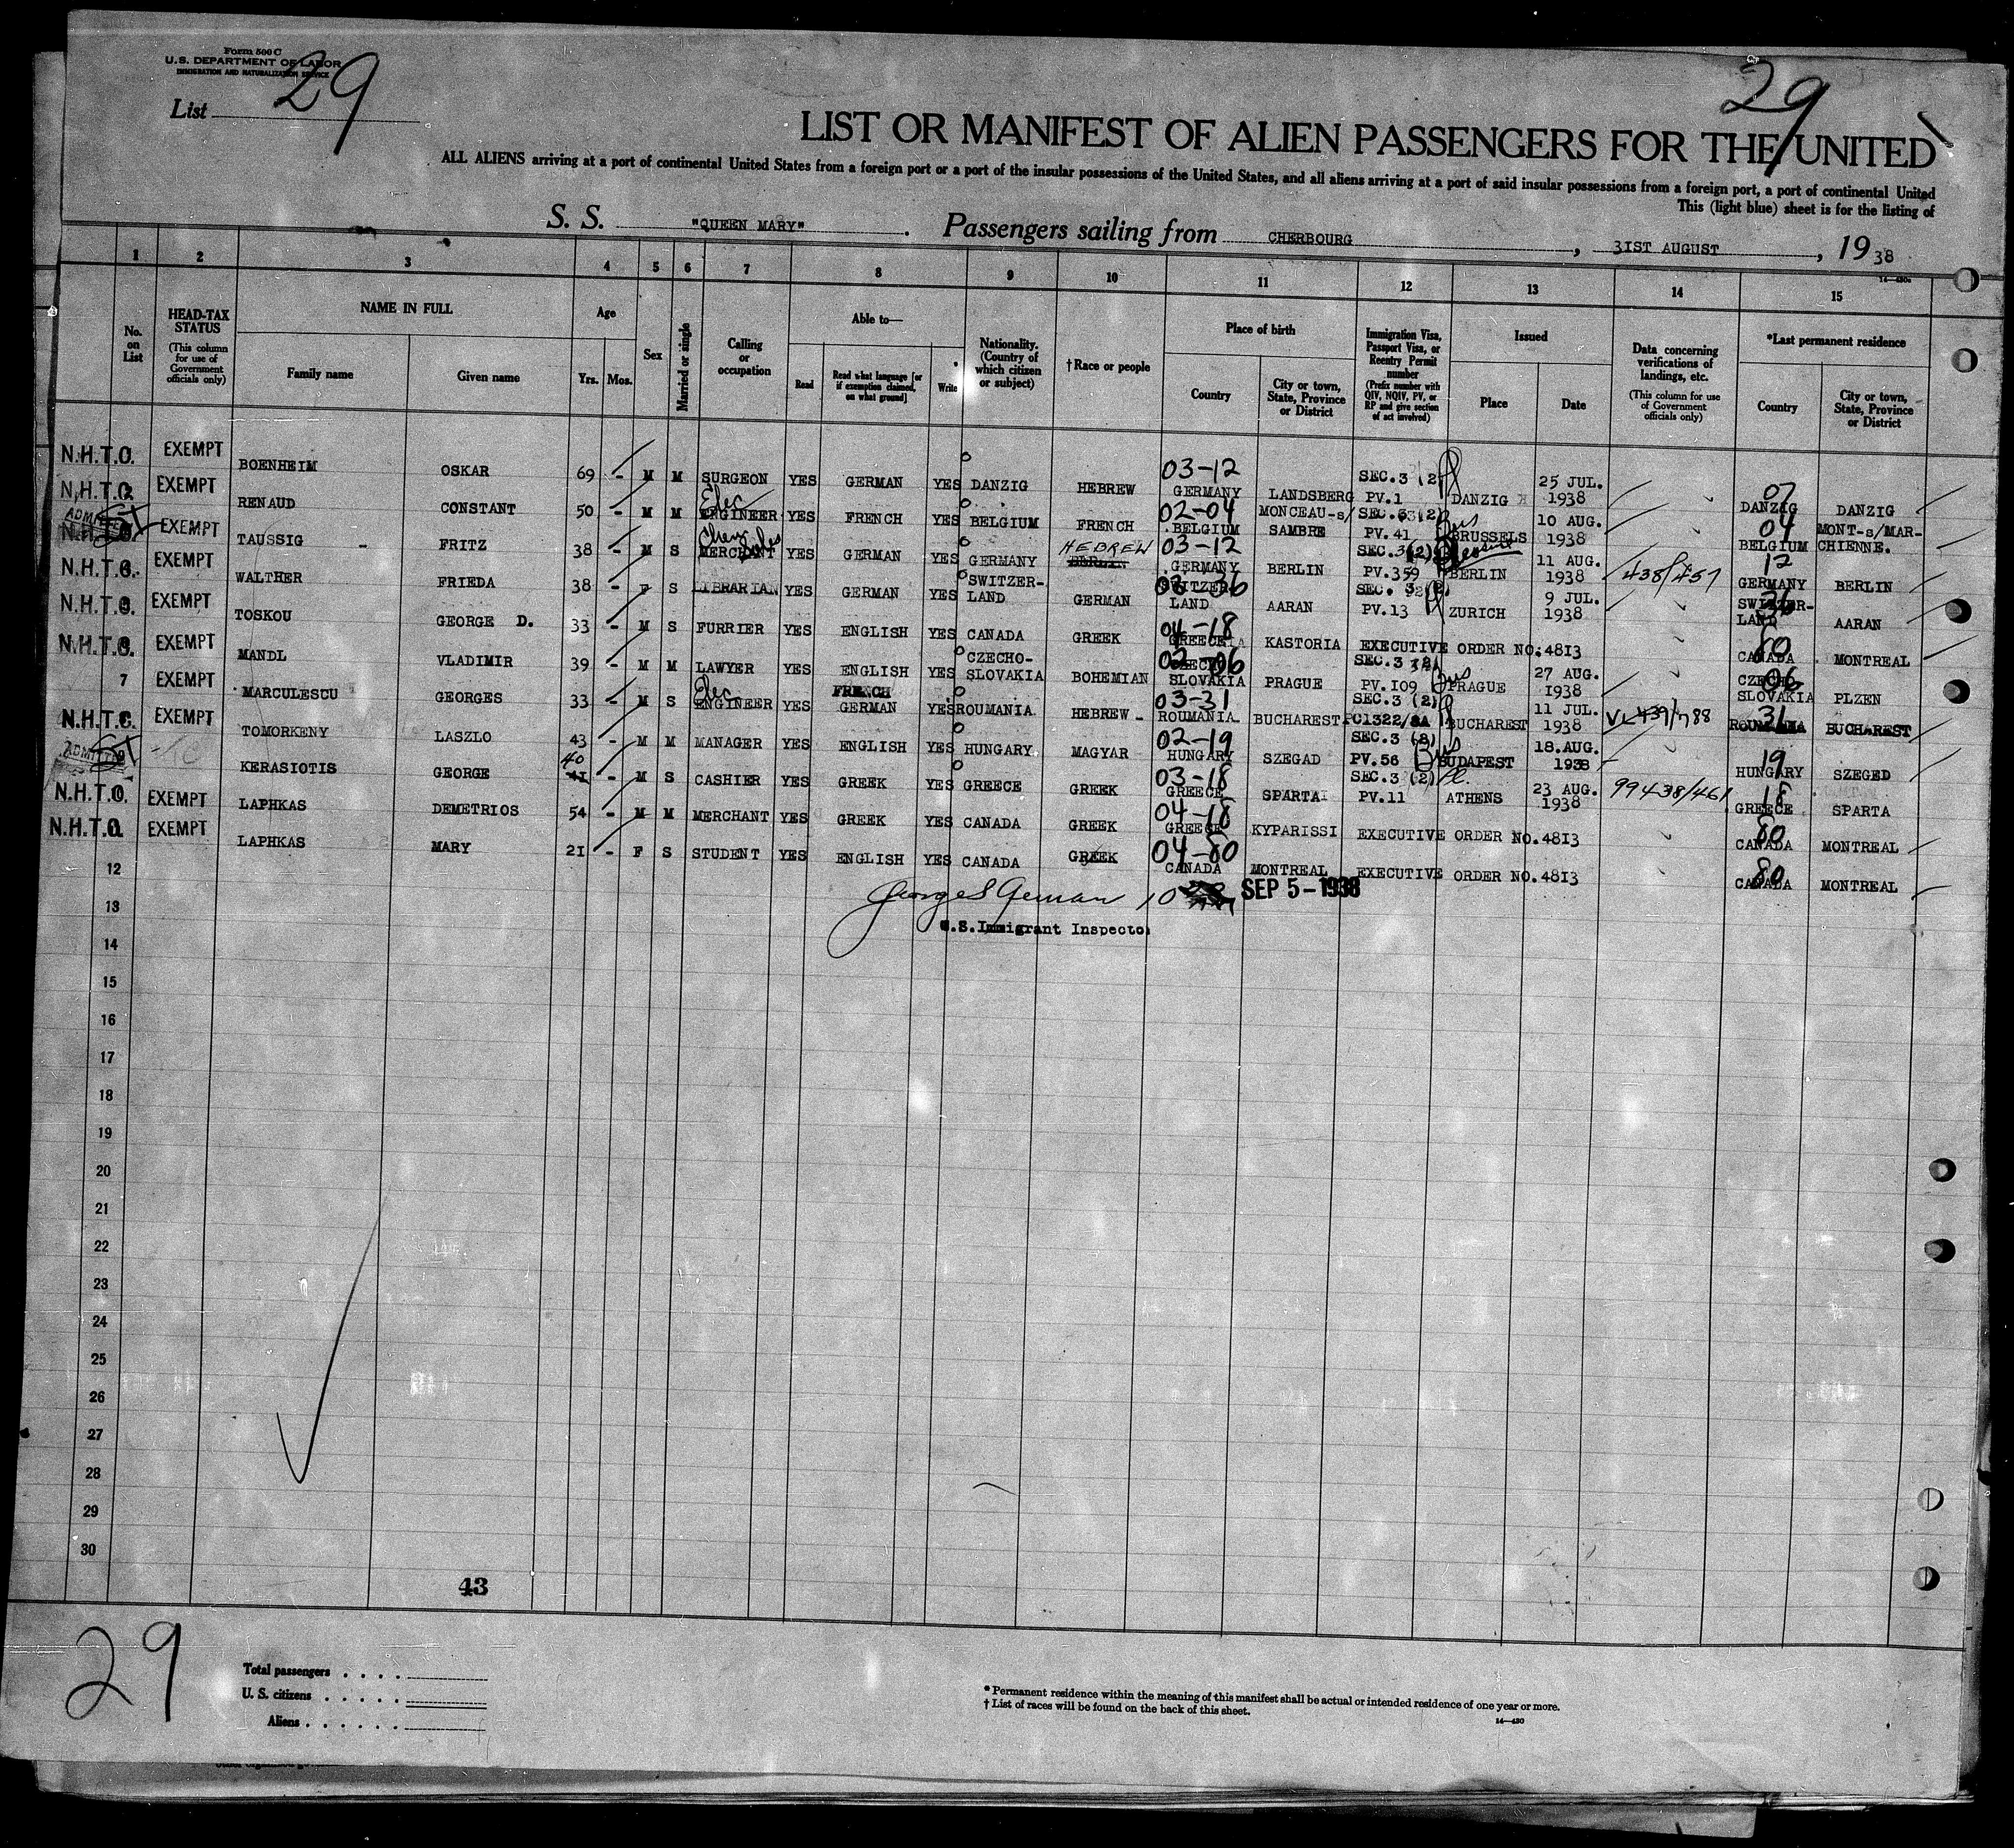 Form 500 C
U.S. DEPARTMENT OF LABOR
IMMIGRATION AND NATURALIZATION SERVICE
List 29
29
LIST OR MANIFEST OF ALIEN PASSENGERS FOR THE UNITED
ALL ALIENS arriving at a port of continental United States from a foreign port or a port of the insular possessions of the United States, and all aliens arriving at a port of said insular possessions from a foreign port, a port of continental United
This (light blue) sheet is for the listing of
S. S. "QUEEN MARY". Passengers sailing from CHERBOURG, 31ST AUGUST, 1938
1 2 3 4 5 6 7 8 9 10 11 12 13 14 15
No. on List
HEAD-TAX STATUS (This column for use of Government officials only)
NAME IN FULL Family name Given name
Age Yrs. Mos.
Sex
Married or single
Calling or occupation
Able to— Read Read what language [or if exemption claimed, on what ground] Write
Nationality. (Country of which citizen or subject)
†Race or people
Place of birth Country City or town, State, Province or District
Immigration Visa, Passport Visa, or Reentry Permit number (Prefix number with QIV, NQIV, PV, or RP and give section of act involved)
Issued Place Date
Data concerning verifications of landings, etc. (This column for use of Government officials only)
*Last permanent residence Country City or town, State, Province or District
N.H.T.O. EXEMPT BOENHEIM OSKAR 69 - M M SURGEON YES GERMAN YES DANZIG HEBREW 03-12 GERMANY LANDSBERG SEC.3 (2) PV.1 DANZIG 25 JUL. 1938 07 DANZIG DANZIG
N.H.T.O. EXEMPT RENAUD CONSTANT 50 - M M Elec ENGINEER YES FRENCH YES BELGIUM FRENCH 02-04 BELGIUM MONCEAU-s/ SAMBRE SEC.3(2) PV.41 Bus BRUSSELS 10 AUG. 1938 04 BELGIUM MONT-s/MAR-CHIENNE.
ADMITTED N.H.T.O. EXEMPT TAUSSIG - FRITZ 38 - M S MERCHANT YES GERMAN YES GERMANY HEBREW 03-12 GERMANY BERLIN SEC.3(2) PV.359 BERLIN 11 AUG. 1938 438/457 12 GERMANY BERLIN
N.H.T.O. EXEMPT WALTHER FRIEDA 38 - F S LIBRARIAN YES GERMAN YES SWITZER-LAND GERMAN 03-36 SWITZER-LAND AARAN SEC. 3(2) PV.13 ZURICH 9 JUL. 1938 36 SWITZER-LAND AARAN
N.H.T.O. EXEMPT TOSKOU GEORGE D. 33 - M S FURRIER YES ENGLISH YES CANADA GREEK 04-18 GREECE KASTORIA EXECUTIVE ORDER NO.4813 80 CANADA MONTREAL
N.H.T.O. EXEMPT MANDL VLADIMIR 39 - M M LAWYER YES ENGLISH YES CZECHO-SLOVAKIA BOHEMIAN 02-06 CZECHO-SLOVAKIA PRAGUE SEC.3 (2) PV.109 Bus PRAGUE 27 AUG. 1938 06 CZECHO-SLOVAKIA PLZEN
7 EXEMPT MARCULESCU GEORGES 33 - M S Elec ENGINEER YES FRENCH GERMAN YES ROUMANIA HEBREW 03-31 ROUMANIA BUCHAREST SEC.3 (2) BUCHAREST 11 JUL. 1938 31 ROUMANIA BUCHAREST
N.H.T.O. EXEMPT TOMORKENY LASZLO 43 - M M MANAGER YES ENGLISH YES HUNGARY MAGYAR 02-19 HUNGARY SZEGAD SEC.3 (2) PV.56 Bus BUDAPEST 18.AUG. 1938 19 HUNGARY SZEGED
ADMITTED KERASIOTIS GEORGE 40 41 - M S CASHIER YES GREEK YES GREECE GREEK 03-18 GREECE SPARTA SEC.3 (2) Pl. PV.11 ATHENS 23 AUG. 1938 99438/461 18 GREECE SPARTA
N.H.T.O. EXEMPT LAPHKAS DEMETRIOS 54 - M M MERCHANT YES GREEK YES CANADA GREEK 04-18 GREECE KYPARISSI EXECUTIVE ORDER NO.4813 80 CANADA MONTREAL
N.H.T.O. EXEMPT LAPHKAS MARY 21 - F S STUDENT YES ENGLISH YES CANADA GREEK 04-80 CANADA MONTREAL EXECUTIVE ORDER NO.4813 80 CANADA MONTREAL
12
George S German 10 SEP 5-1938
13
U.S.Immigrant Inspector
14
15
16
17
18
19
20
21
22
23
24
25
26
27
28
29
30
43
29
Total passengers . . . .
U. S. citizens . . . . .
Aliens . . . . . .
* Permanent residence within the meaning of this manifest shall be actual or intended residence of one year or more.
† List of races will be found on the back of this sheet.
14—430